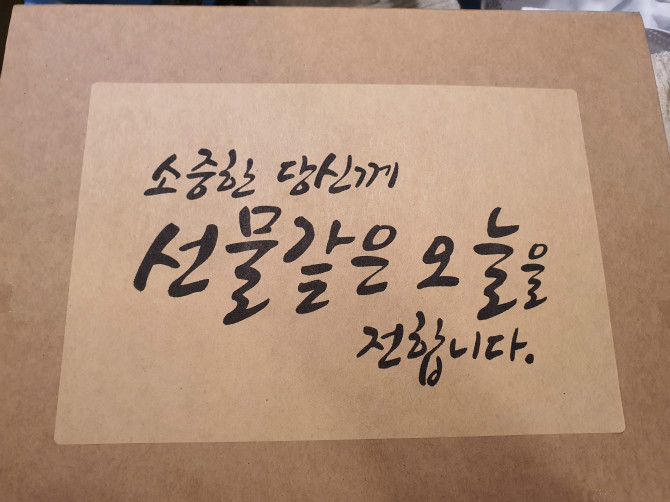 소중한 당신께
선물같은 오늘을
전합니다.